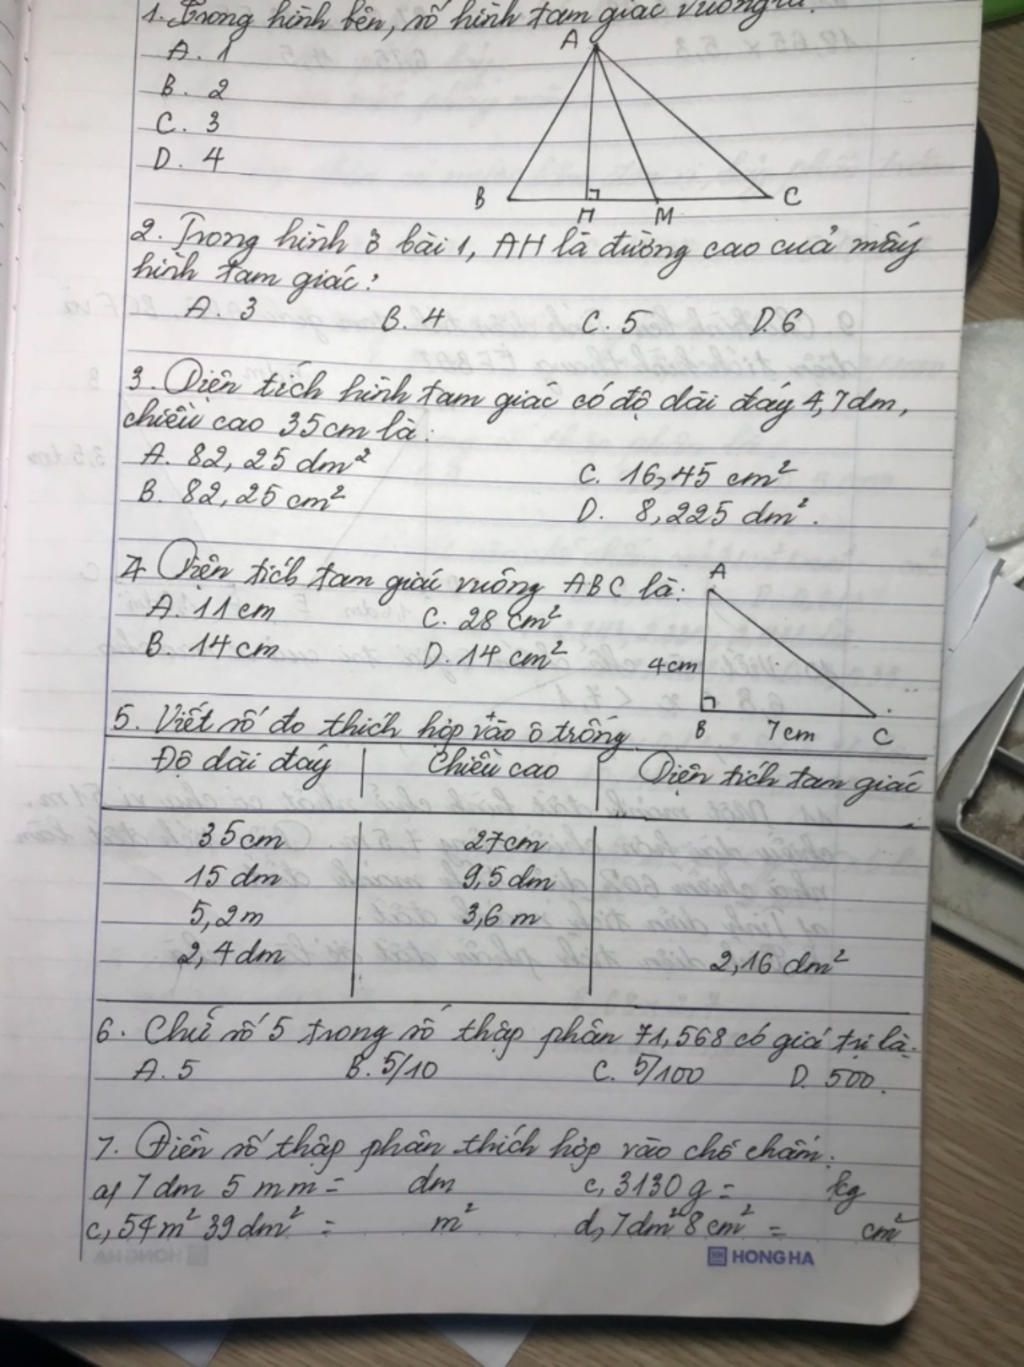 1. Trong hình bên, số hình tam giác vuông là:
A. 1
B. 2
C. 3
D. 4
A
B
H
M
C
2. Trong hình ở bài 1, AH là đường cao của mấy
hình tam giác?
A. 3 B. 4 C. 5 D. 6
3. Diện tích hình tam giác có độ dài đáy 4,7dm,
chiều cao 35cm là:
A. 82,25 dm² C. 16,45 cm²
B. 82,25 cm² D. 8,225 dm².
4. Diện tích tam giác vuông ABC là:
A. 11 cm C. 28 cm²
B. 14 cm D. 14 cm²
A
4cm
B 7cm C
5. Viết số đo thích hợp vào ô trống
Độ dài đáy Chiều cao Diện tích tam giác
35cm 27cm
15 dm 9,5 dm
5,2m 3,6 m
2,4dm 2,16 dm²
6. Chữ số 5 trong số thập phân 71,568 có giá trị là:
A. 5 B. 5/10 C. 5/100 D. 500.
7. Điền số thập phân thích hợp vào chỗ chấm:
a, 7dm 5 mm = dm c, 3130g = kg
c, 54m² 39dm² = m² d, 7dm² 8cm² = cm²
HONG HA